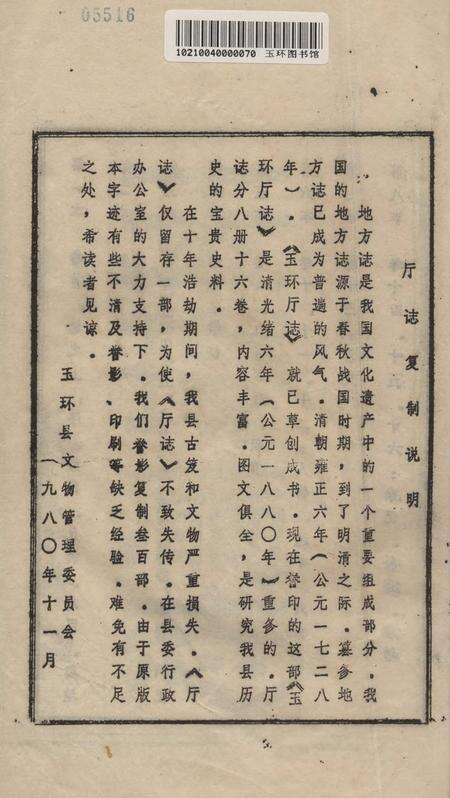 05516
10210040000070 玉环图书馆
厅志复制说明
地方志是我国文化遗产中的一个重要组成部分。我
国的地方志源于春秋战国时期，到了明清之际。纂修地
方志已成为普遍的风气。清朝雍正六年（公元一七二八
年）。《玉环厅志》就已草创成书。现在誉印的这部《玉
环厅志》是清光绪六年（公元一八八〇年）重修的。厅
志分八册十六卷，内容丰富。图文俱全，是研究我县历
史的宝贵史料。
在十年浩劫期间，我县古笈和文物严重损失。《厅
志》仅留存一部，为使《厅志》不致失传。在县委行政
办公室的大力支持下。我们誊影复制叁百部。由于原版
本字迹有些不清及誊影、印刷等缺乏经验。难免有不足
之处，希读者见谅。
玉环县文物管理委员会
一九八〇年十一月